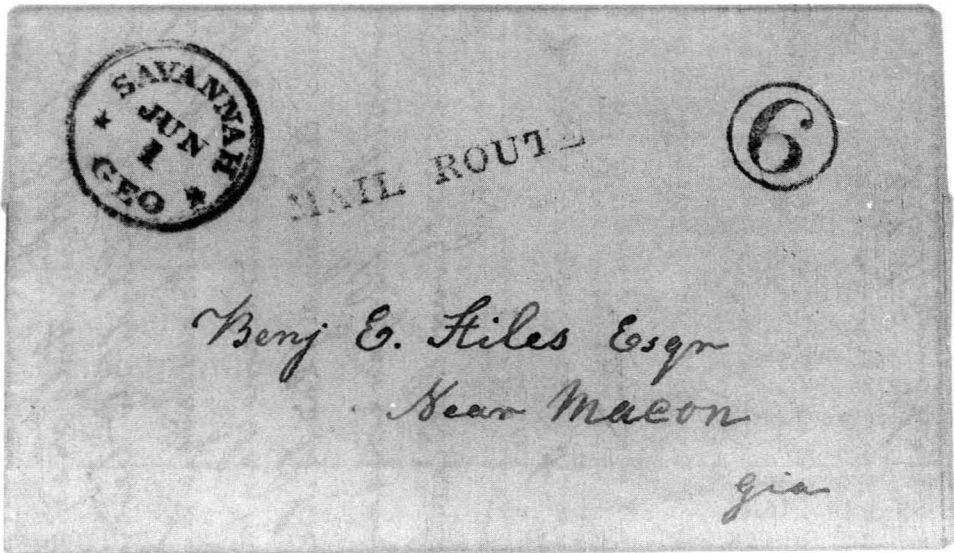 SAVANNAH
JUN
1
GEO
MAIL ROUTE
6
Benj E. Stiles Esqr
Near Macon
Gia